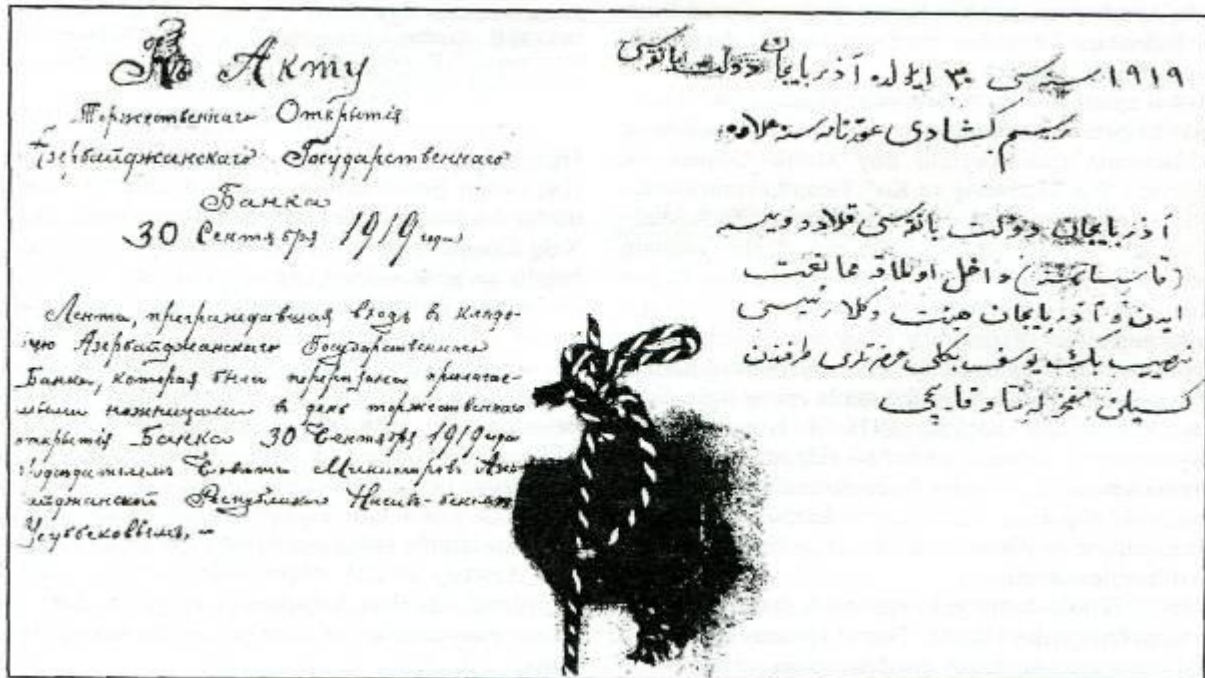 Къ Акту
Торжественнаго Открытія
Азербайджанскаго Государственнаго
Банка
30 Сентября 1919 года
Лента, преграждавшая входъ в кладо-
вую Азербайджанскаго Государственнаго
Банка, которая была перерѣзана прилагае-
мыми ножницами в день торжественнаго
открытія Банка 30 Сентября 1919 года
Предсѣдателемъ Совѣта Министровъ Азер-
байджанской Республики Насибъ-бекомъ
Усуббековымъ.
۱۹۱۹ سنه‌سی ۳۰ ایلول آذربایجان دولت بانقوسی
رسم گشادی
آذربایجان دولت بانقوسی
داخل اولماقه ممانعت
ایدن و آذربایجان هیئت وکلا رئیسی
نصیب بك یوسف بکلی حضرتلری طرفندن
کسیلن